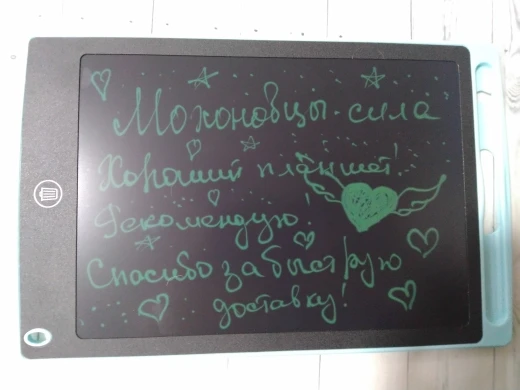 Мохоновцы-сила
Хороший планшет!
Рекомендую!
Спасибо за быструю
доставку!